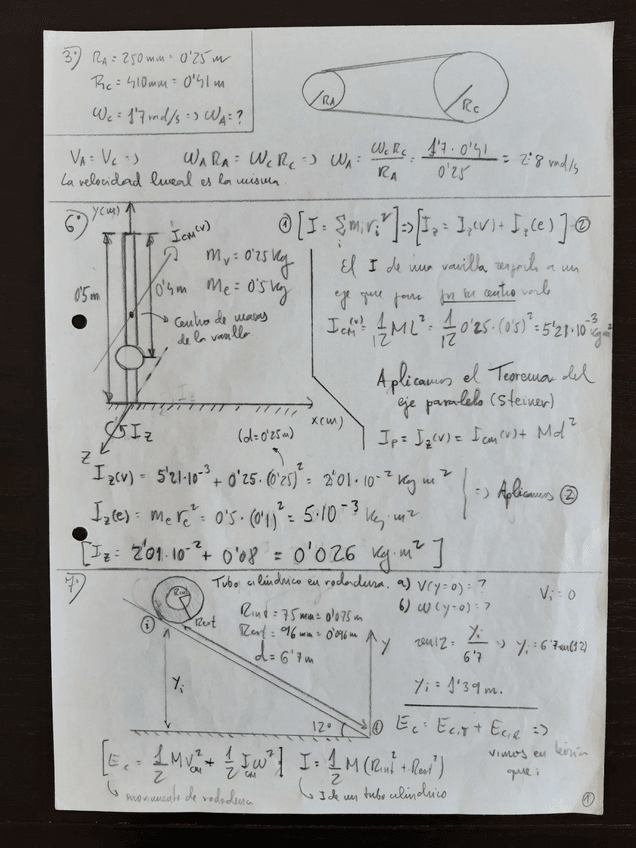 3º) RA = 250mm = 0'25 m
RC = 410mm = 0'41 m
ωC = 1'7 rad/s => ωA = ?
RA
RC
VA = VC => ωA RA = ωC RC => ωA = ωC RC / RA = 1'7 · 0'41 / 0'25 = 2'8 rad/s
La velocidad lineal es la misma
6º) y(m)
ICM(v)
mv = 0'25 kg
me = 0'5 kg
0'5 m
0'4 m
Centro de masas
de la varilla
x(m)
IZ
Z
① [I = Σi mi ri²] => [Iz = Iz(v) + Iz(e)] ②
El I de una varilla respecto a un
eje que pase por su centro vale
ICM(v) = 1/12 ML² = 1/12 0'25 · (0'5)² = 5'21·10⁻³ kg m²
Aplicamos el Teorema del
eje paralelo (Steiner)
IP = Iz(v) = Icm(v) + Md²
(d = 0'25m)
Iz(v) = 5'21·10⁻³ + 0'25 · (0'25)² = 2'01·10⁻² kg m²
=> Aplicamos ②
Iz(e) = me re² = 0'5 · (0'1)² = 5·10⁻³ kg·m²
[Iz = 2'01·10⁻² + 0'08 = 0'026 kg·m²]
7º) Tubo cilíndrico en rodadura. a) V(y=0) = ?
b) ω(y=0) = ?
Vi = 0
Rint
Rext
Rint = 75mm = 0'075 m
Rext = 96 mm = 0'096 m
d = 6'7m
i
yi
y
12º
f
sen12 = yi / 6'7 => yi = 6'7 sen(12)
yi = 1'39 m.
Ec = Ec,T + Ec,R =>
vimos en teoría
que:
[Ec = 1/2 M VCM² + 1/2 ICM ω²] I = 1/2 M (Rint² + Rext²)
movimiento de rodadura
I de un tubo cilíndrico
①